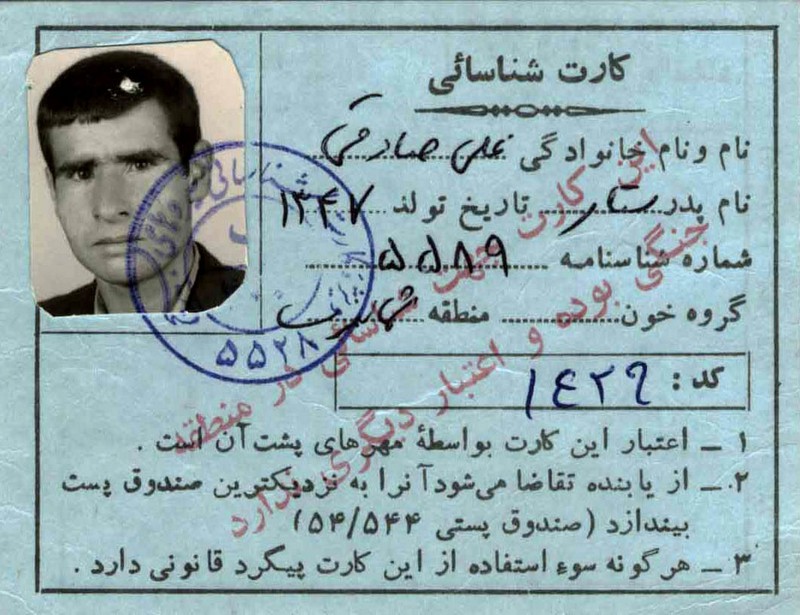 کارت شناسائی
نام ونام خانوادگی علی صادقی
نام پدر ستار تاریخ تولد ۱۳۴۷
شماره شناسنامه ۵۵۸۹
گروه خون منطقه
کد : ۱۴۲۶
۱ – اعتبار این کارت بواسطهٔ مهرهای پشت آن است .
۲ – از یابنده تقاضا می‌شود آنرا به نزدیکترین صندوق پست
بیندازد (صندوق پستی ۵۴/۵۴۴)
۳ – هرگونه سوء استفاده از این کارت پیگرد قانونی دارد .
این کارت جهت شناسائی در منطقه
جنگی بوده و اعتبار دیگری ندارد
۵۵۲۸